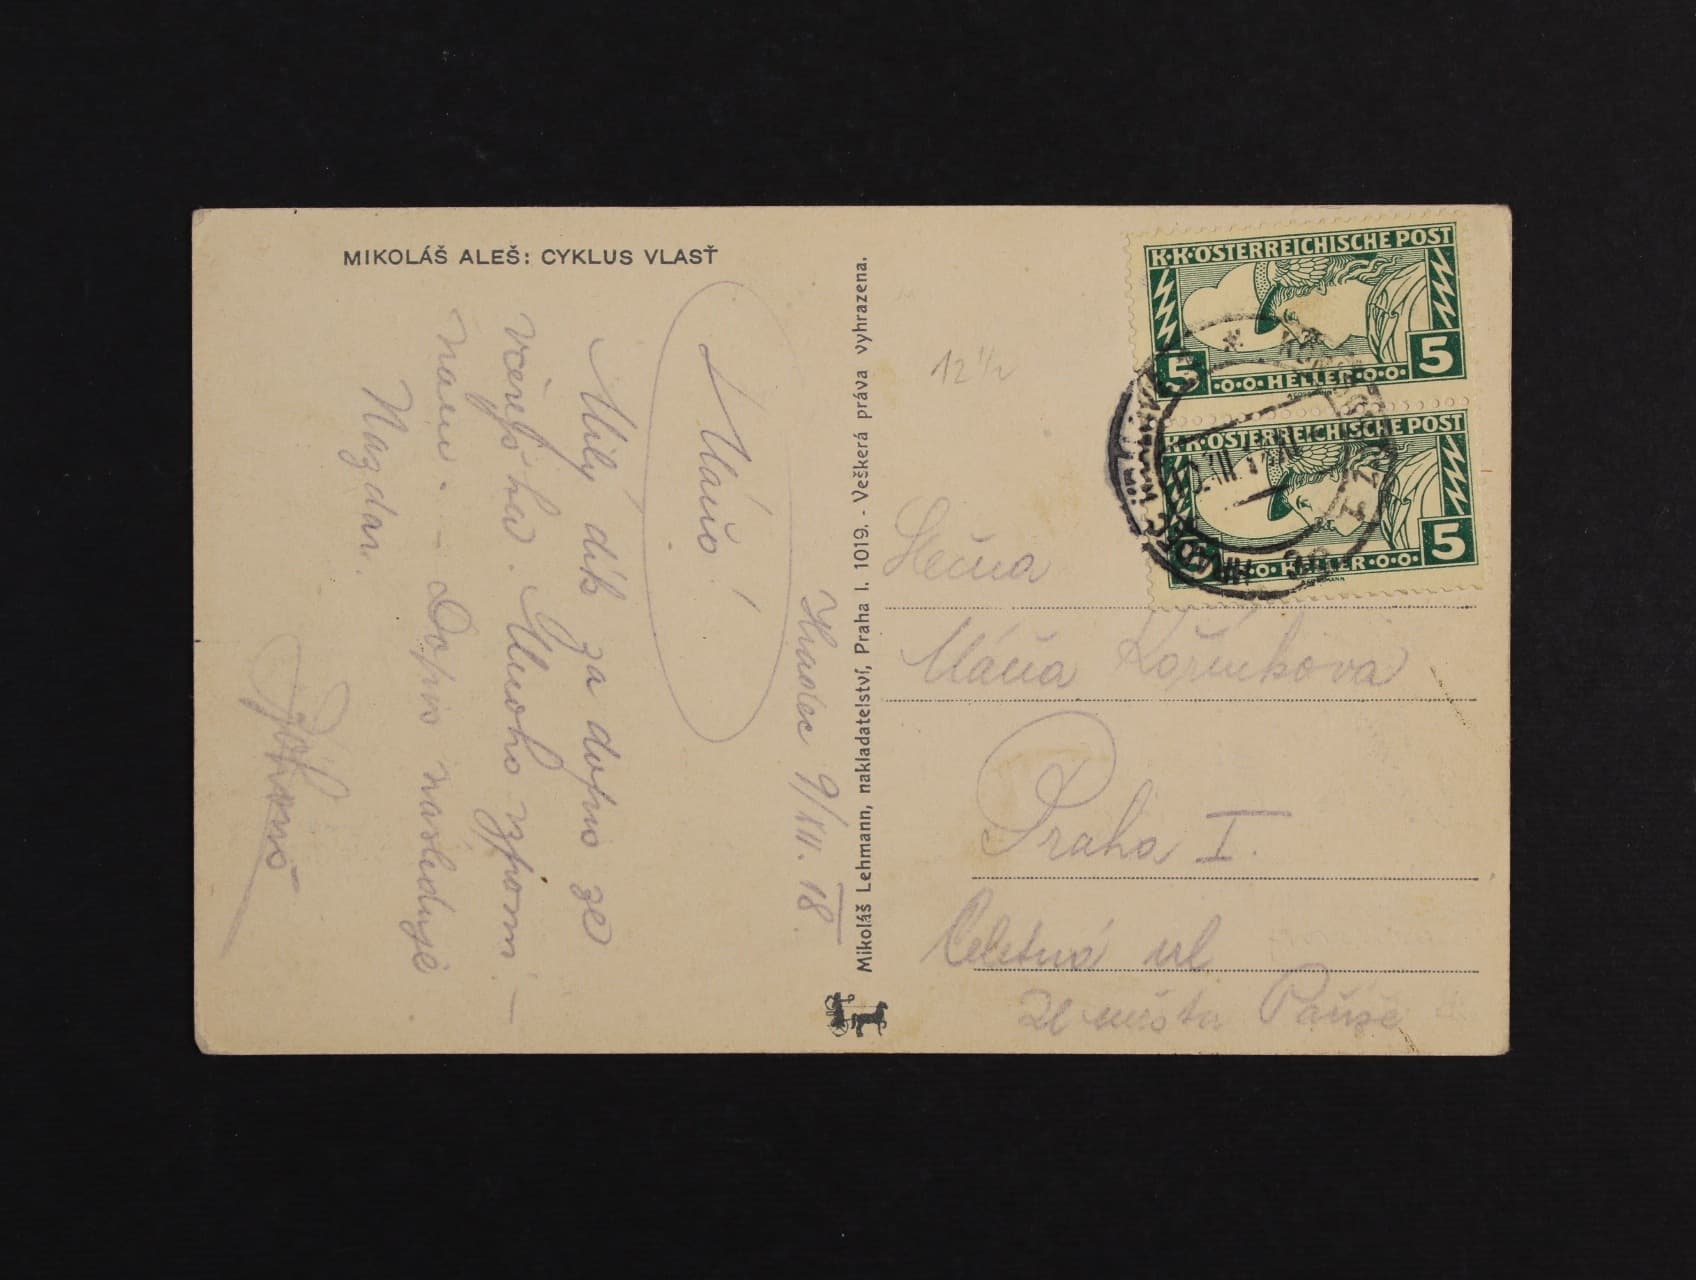 MIKOLÁŠ ALEŠ: CYKLUS VLASŤ
Hradec 9/XII. 18.
Máňo!
Milý dík za dopis ze
včerejška. Mnoho vzpomí-
nám. - Dopis následuje
Nazdar.
Mikoláš Lehmann, nakladatelství, Praha I. 1019. - Veškerá práva vyhrazena.
12 1/2
K.K.ÖSTERREICHISCHE POST
5 HELLER 5
K.K.ÖSTERREICHISCHE POST
5 HELLER 5
HRADEC KRÁLOVÉ
KÖNIGGRÄTZ 1
Slečna
Máňa Kořínková
Praha I.
Celetná ul
města Paříže